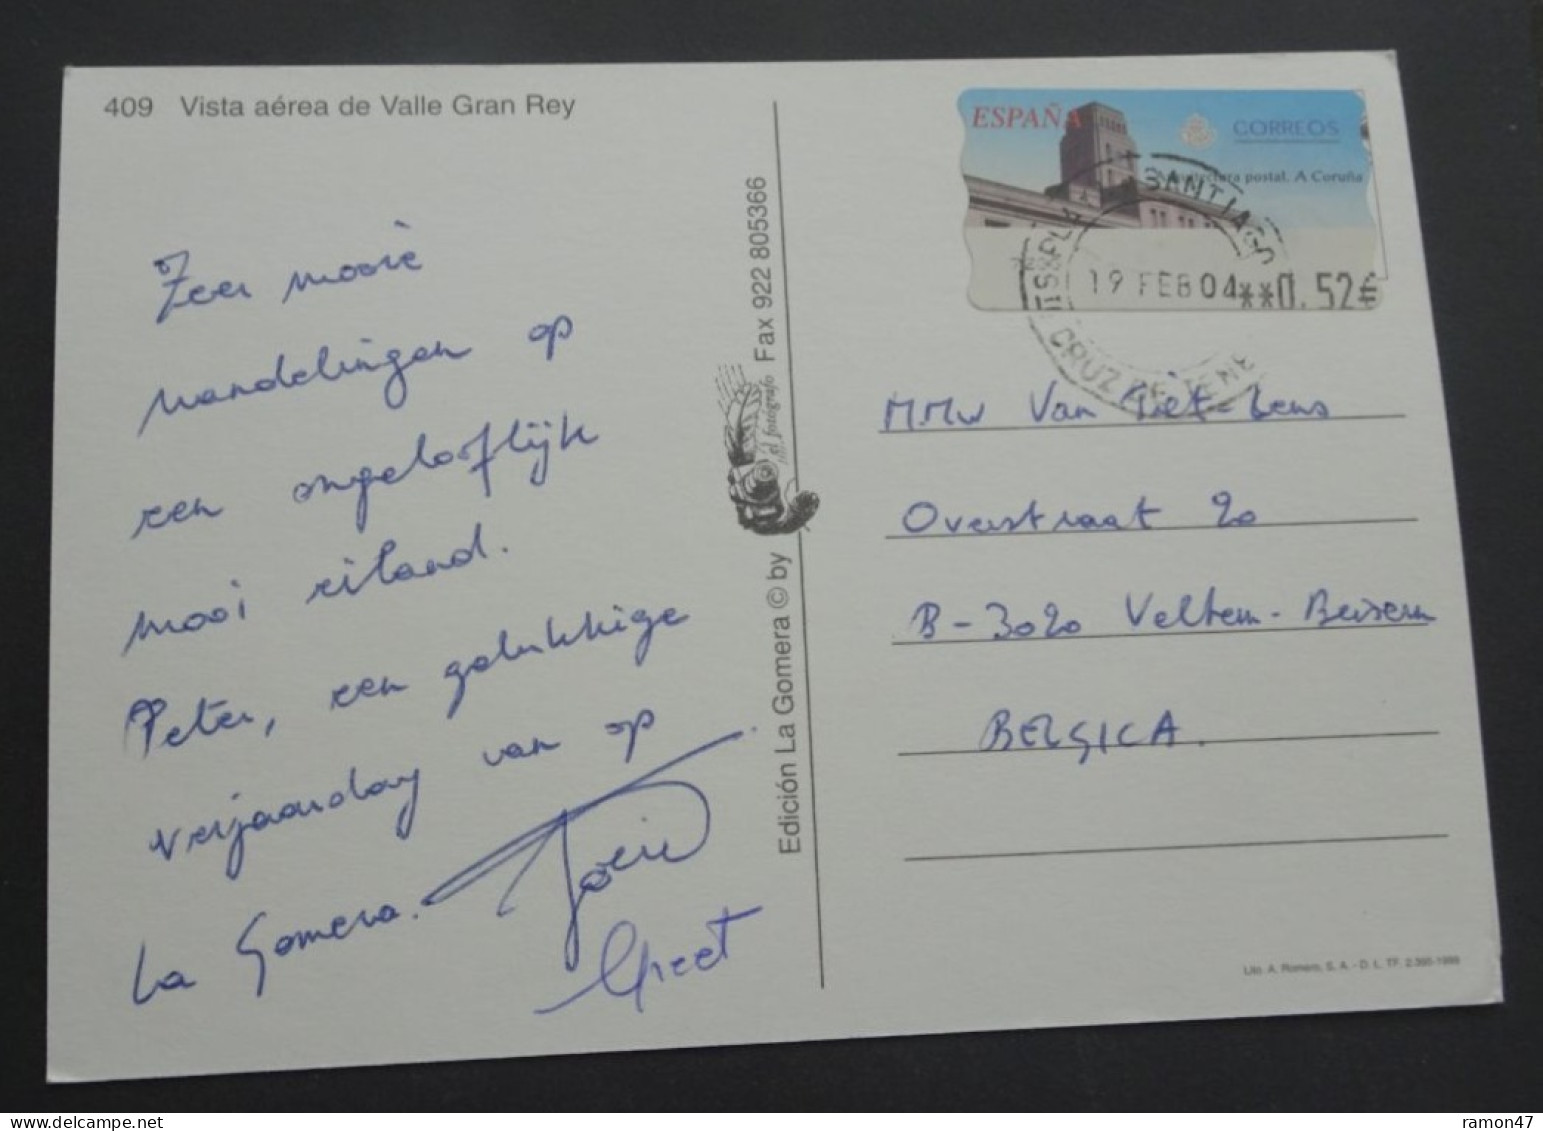 409 Vista aérea de Valle Gran Rey
Zeer mooie
wandelingen op
een ongelooflijk
mooi eiland.
Peter, een gelukkige
verjaardag van op
La Gomera.
Greet
Edición La Gomera © by
el fotógrafo
Fax 922 805366
ESPAÑA
CORREOS
Arquitectura postal. A Coruña
SANTIAGO
19 FEB 04
**0,52€
CRUZ DE TENE
M.Mw Van Piet-Lens
Overstraat 20
B-3020 Veltem-Beisem
BELGICA.
Lito. A. Romero, S. A. - D. L. TF. 2.395-1999
ramon47